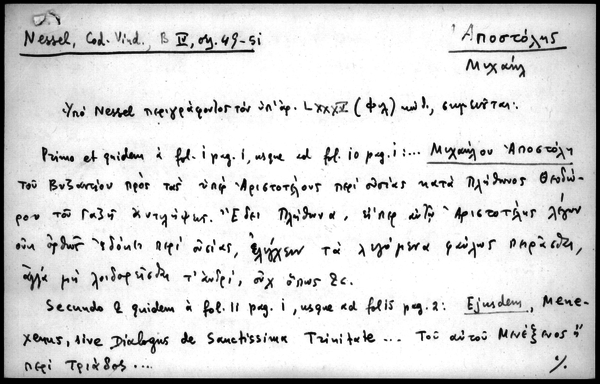 Nessel, Cod. Vind., B IV, σσ. 49-51
Ἀποστόλης
Μιχαήλ
Ὑπὸ Nessel περιγράφοντος τὸν ὑπ' ἀρ. LXXXIV (φιλ) κώδ., σημειοῦται:
Primo et quidem à fol. 1 pag. 1, usque ad fol. 10 pag. 1: ... Μιχαήλου Ἀποστόλη
τοῦ Βυζαντίου πρὸς τὰς ὑπὲρ Ἀριστοτέλους περὶ οὐσίας κατὰ Πλήθωνος Θεοδώ-
ρου τοῦ Γαζῆ ἀντιλήψεις. Ἔδει Πλήθωνα, εἴπερ αὐτῷ Ἀριστοτέλης λέγων
οὐκ ὀρθῶς ἐδόκει περὶ οὐσίας, ἐλέγχειν τὰ λεγόμενα φαύλως πειρᾶσθαι,
ἀλλὰ μὴ λοιδορεῖσθαι τἀνδρί, οὐχ ὅπως &c.
Secundo & quidem à fol. 11 pag. 1, usque ad fol 15 pag. 2: Ejusdem, Mene-
xenus, sive Dialogus de Sanctissima Trinitate ... Τοῦ αὐτοῦ Μνέξενος ἢ
περὶ Τριάδος ...
%